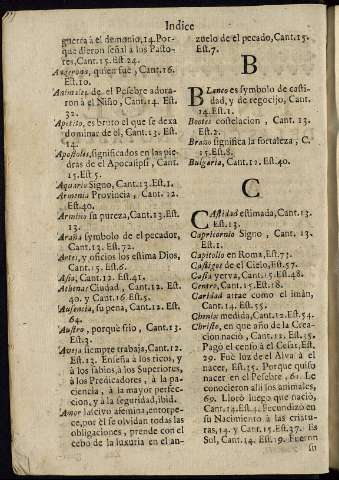 Indice
guerra à el demonio, 14. Por-
que dieron señal à los Pasto-
res, Cant. 15. Est. 24.
Angerona, quien fue, Cant. 16.
Est. 10.
Animales de el Pesebre adora-
ron à el Niño, Cant. 14. Est.
32.
Apetito, es bruto el que se dexa
dominar de èl, Cant. 13. Est.
14.
Apostoles, significados en las pie-
dras de el Apocalipsi, Cant.
15. Est. 5.
Aquario Signo, Cant. 13. Est. 1.
Armenia Provincia, Cant. 12.
Est. 40.
Armiño su pureza, Cant. 13. Est.
13.
Araña symbolo de el pecador,
Cant. 13. Est. 72.
Artes, y oficios los estima Dios,
Cant. 15. Est. 6.
Asia, Cant. 12. Est. 41.
Athenas Ciudad, Cant. 12. Est.
40. y Cant. 16. Est. 5.
Ausencia, su pena, Cant. 12. Est.
64.
Austro, porque frio, Cant. 13.
Est. 3.
Aveja siempre trabaja, Cant. 12.
Est. 13. Enseña à los ricos, y
à los sabios, à los Superiores,
à los Predicadores, à la pa-
ciencia, à la mayor perfec-
cion, y à la seguridad, ibid.
Amor lascivo afemina, entorpe-
ce, por èl se olvidan todas las
obligaciones, prende con el
cebo de la luxuria en el an-
zuelo de el pecado, Cant. 15.
Est. 7.
B
Blanco es symbolo de casti-
dad, y de regocijo, Cant.
14. Est. 1.
Bootes constelacion, Cant. 13.
Est. 2.
Brazo significa la fortaleza, C.
15. Est. 8.
Bulgaria, Cant. 12. Est. 40.
C
Castidad estimada, Cant. 13.
Est. 13.
Capricornio Signo, Cant. 13.
Est. 1.
Capitolio en Roma, Est. 73.
Castigos de el Cielo, Est. 57.
Casia yerva, Cant. 15. Est. 48.
Centro, Cant. 15. Est. 18.
Caridad atrae como el imàn,
Cant. 14. Est. 55.
Chenix medida, Cant. 12. Est. 54.
Christo, en que año de la Crea-
cion naciò, Cant. 12. Est. 35.
Pagò el censo à el Cesar, Est.
29. Fuè luz de el Alva à el
nacer, Est. 35. Porque quiso
nacer en el Pesebre, 61. Le
conocieron alli los animales,
69. Llorò luego que naciò,
Cant. 14. Est. 4. Fecundizò en
su Nacimiento à las criatu-
ras, 14. y Cant. 15. Est. 37. Es
Sol, Cant. 14. Est. 19. Fueron
su